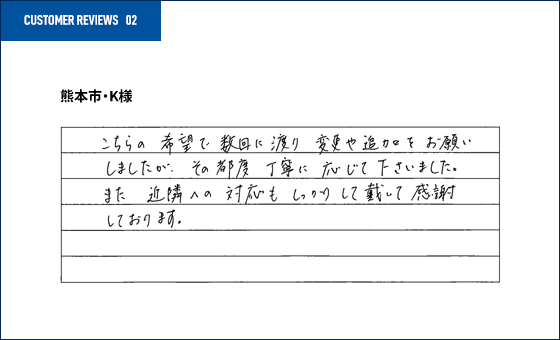 CUSTOMER REVIEWS 02
熊本市・K様
こちらの希望で数回に渡り変更や追加をお願い
しましたが、その都度丁寧に応じて下さいました。
また近隣への対応もしっかりして戴いて感謝
しております。